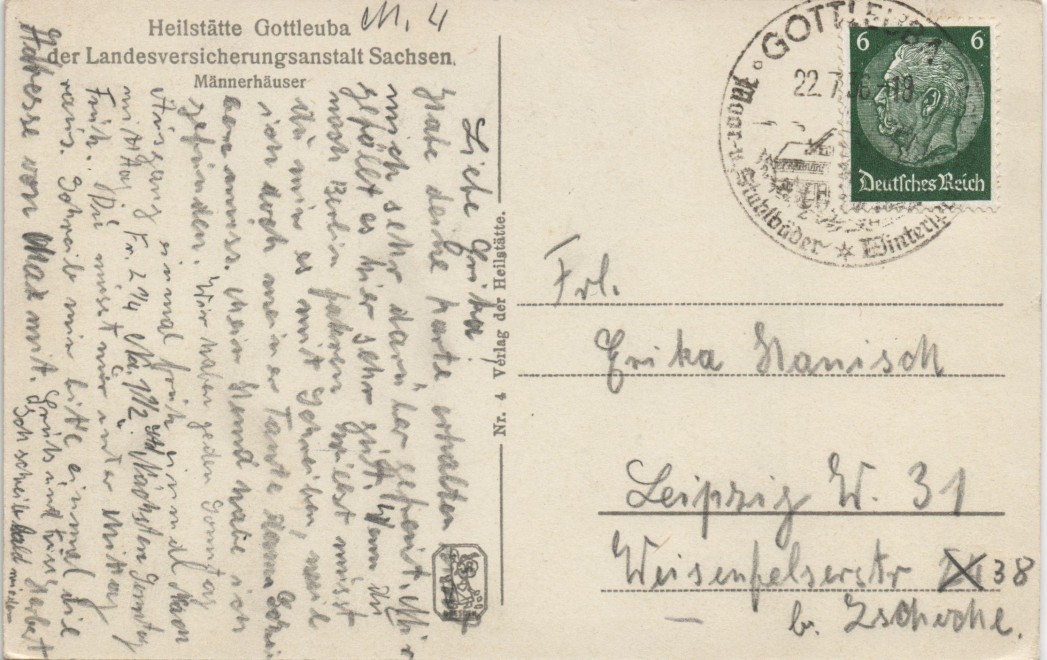 M. 4
Heilstätte Gottleuba
der Landesversicherungsanstalt Sachsen.
Männerhäuser
GOTTLEUBA
22.7.36.-18
Moor- u. Stahlbäder * Wintersp
6 6
Deutsches Reich
Liebe Erika!
Habe deine Karte erhalten
mich sehr darüber gefreut. Mir
gefällt es hier sehr gut. Wenn du
nach Berlin fahren willst musst
du mir es mit schreiben, weil
ich doch meiner Tante dann schrei
ben muss. Mein Hemd habe ich
gefunden. Wir haben jeden Sonntag
Ausgang einmal früh einmal Nach
mittag Fr. 2 1/4 Na. 1 1/2 Std Nächsten Sonntag
Früh. Du musst nur unter Mittag
raus. Schreibe mir bitte einmal die
Adresse von Max mit. Grüß und Kuss Herbert
Ich schreibe bald wieder
Nr. 4 Verlag der Heilstätte.
Frl.
Erika Hanisch
Leipzig W. 31
Weisenfelserstr 38
b. Zschoche.